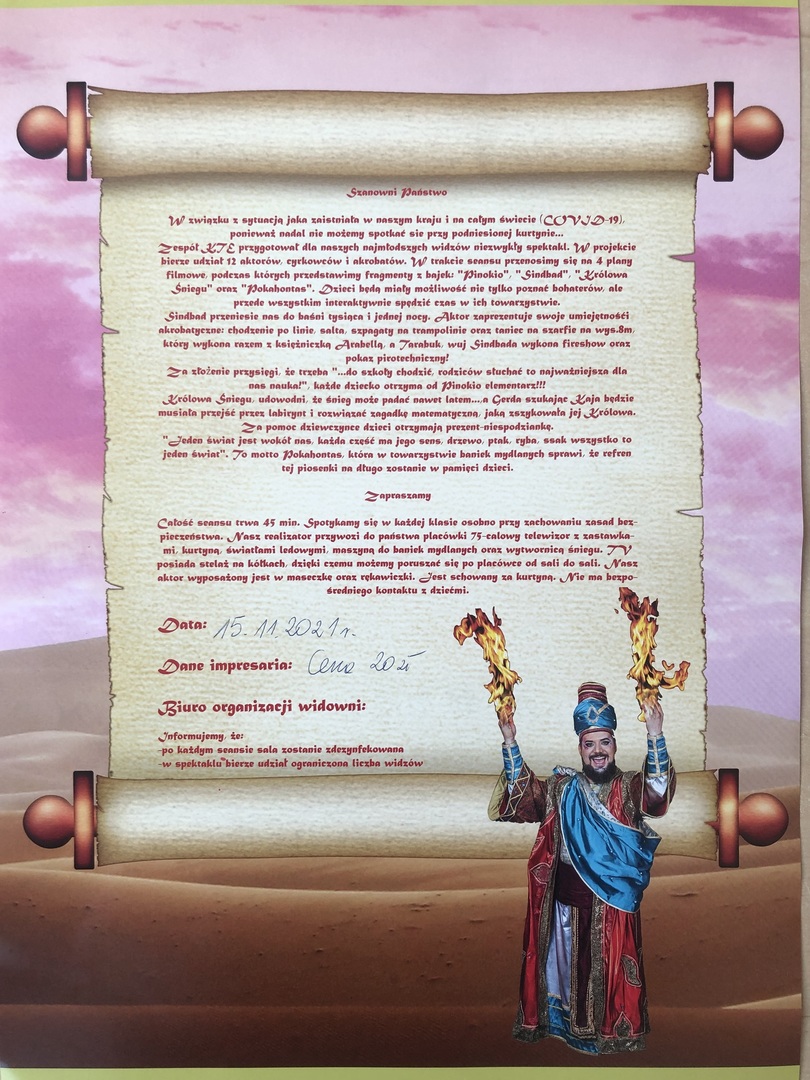 Szanowni Państwo
W związku z sytuacją jaka zaistniała w naszym kraju i na całym świecie (COVID-19),
ponieważ nadal nie możemy spotkać się przy podniesionej kurtynie...
Zespół KTE przygotował dla naszych najmłodszych widzów niezwykły spektakl. W projekcie
bierze udział 12 aktorów, cyrkowców i akrobatów. W trakcie seansu przenosimy się na 4 plany
filmowe, podczas których przedstawimy fragmenty z bajek: "Pinokio", "Sindbad", "Królowa
Śniegu" oraz "Pokahontas". Dzieci będą miały możliwość nie tylko poznać bohaterów, ale
przede wszystkim interaktywnie spędzić czas w ich towarzystwie.
Sindbad przeniesie nas do baśni tysiąca i jednej nocy. Aktor zaprezentuje swoje umiejętności
akrobatyczne: chodzenie po linie, salta, szpagaty na trampolinie oraz taniec na szarfie na wys.8m,
który wykona razem z księżniczką Arabellą, a Tarabuk, wuj Sindbada wykona fireshow oraz
pokaz pirotechniczny!
Za złożenie przysięgi, że trzeba "...do szkoły chodzić, rodziców słuchać to najważniejsza dla
nas nauka!", każde dziecko otrzyma od Pinokio elementarz!!!
Królowa Śniegu, udowodni, że śnieg może padać nawet latem...,a Gerda szukając Kaja będzie
musiała przejść przez labirynt i rozwiązać zagadkę matematyczną, jaką zszykowała jej Królowa.
Za pomoc dziewczynce dzieci otrzymają prezent-niespodziankę.
"Jeden świat jest wokół nas, każda część ma jego sens, drzewo, ptak, ryba, ssak wszystko to
jeden świat". To motto Pokahontas, która w towarzystwie baniek mydlanych sprawi, że refren
tej piosenki na długo zostanie w pamięci dzieci.
Zapraszamy
Całość seansu trwa 45 min. Spotykamy się w każdej klasie osobno przy zachowaniu zasad bez-
pieczeństwa. Nasz realizator przywozi do państwa placówki 75-calowy telewizor z zastawka-
mi, kurtyną, światłami ledowymi, maszyną do baniek mydlanych oraz wytwornicą śniegu. TV
posiada stelaż na kółkach, dzięki czemu możemy poruszać się po placówce od sali do sali. Nasz
aktor wyposażony jest w maseczkę oraz rękawiczki. Jest schowany za kurtyną. Nie ma bezpo-
średniego kontaktu z dziećmi.
Data: 15.11.2021r.
Dane impresaria: Cena 20zł
Biuro organizacji widowni:
Informujemy, że:
-po każdym seansie sala zostanie zdezynfekowana
-w spektaklu bierze udział ograniczona liczba widzów